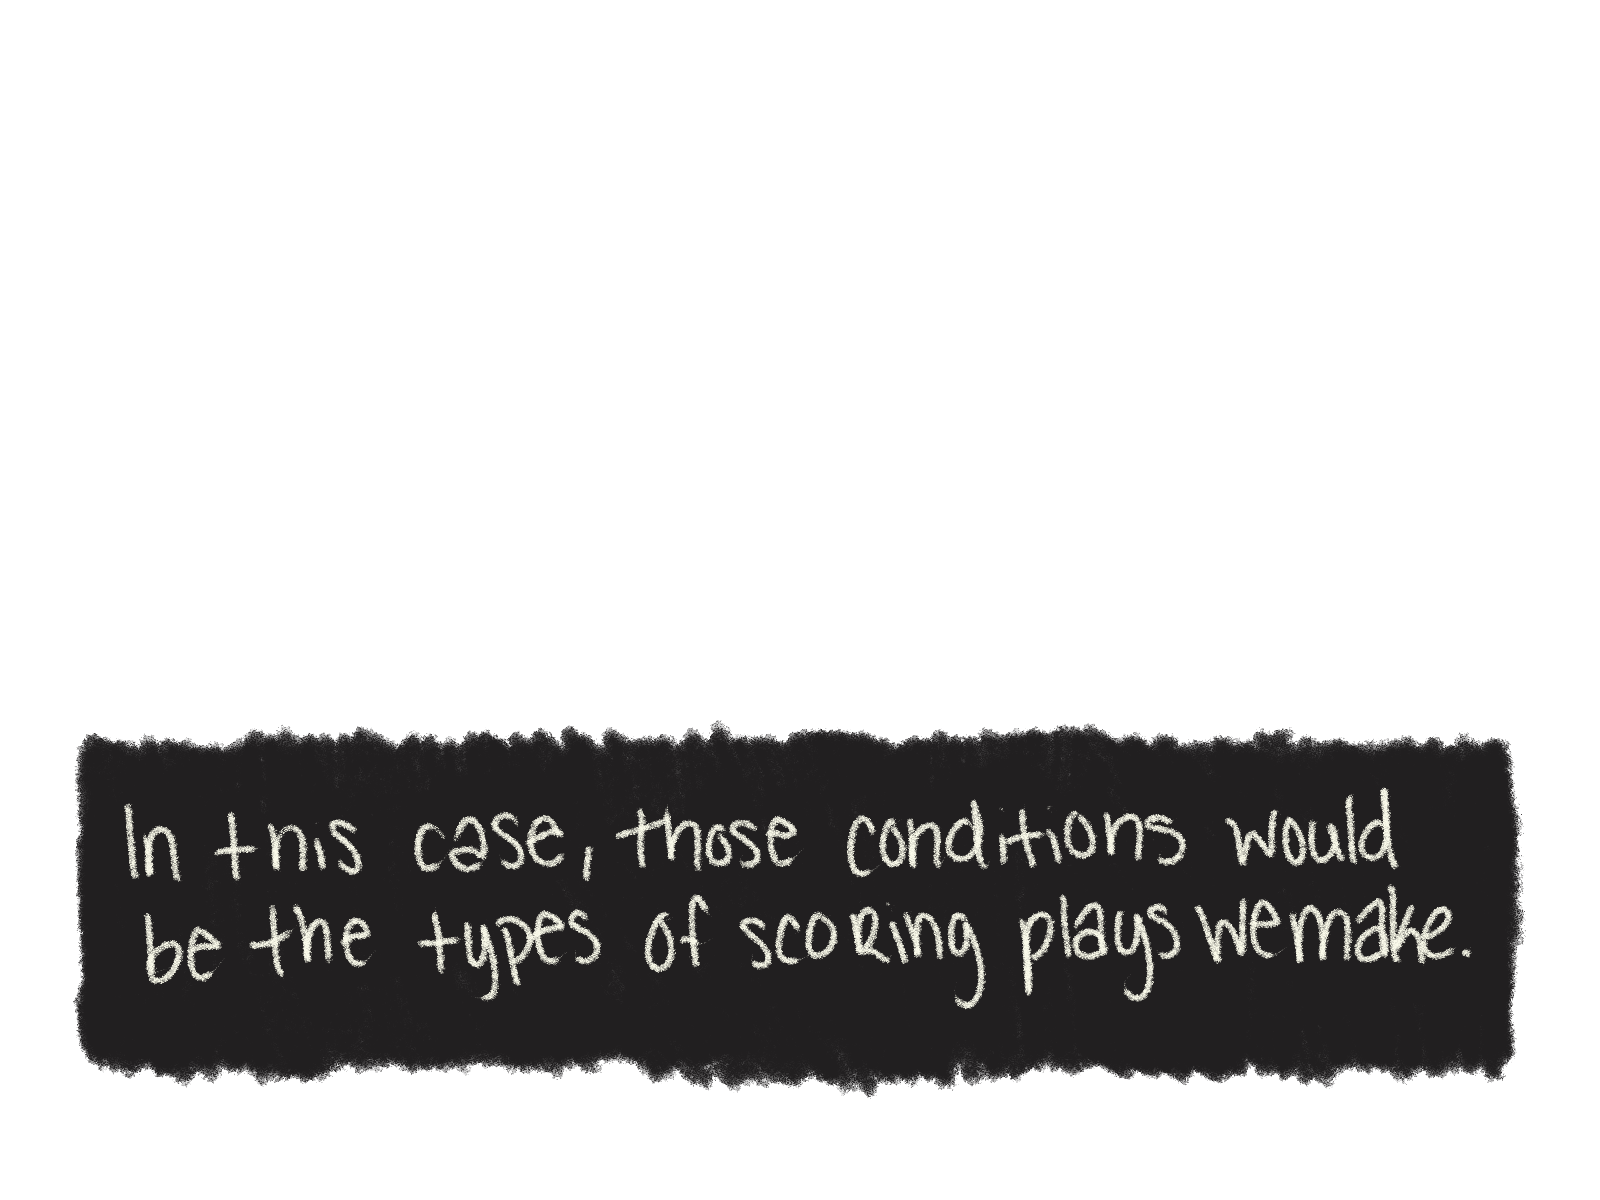 In this case, those conditions would
be the types of scoring plays we make.